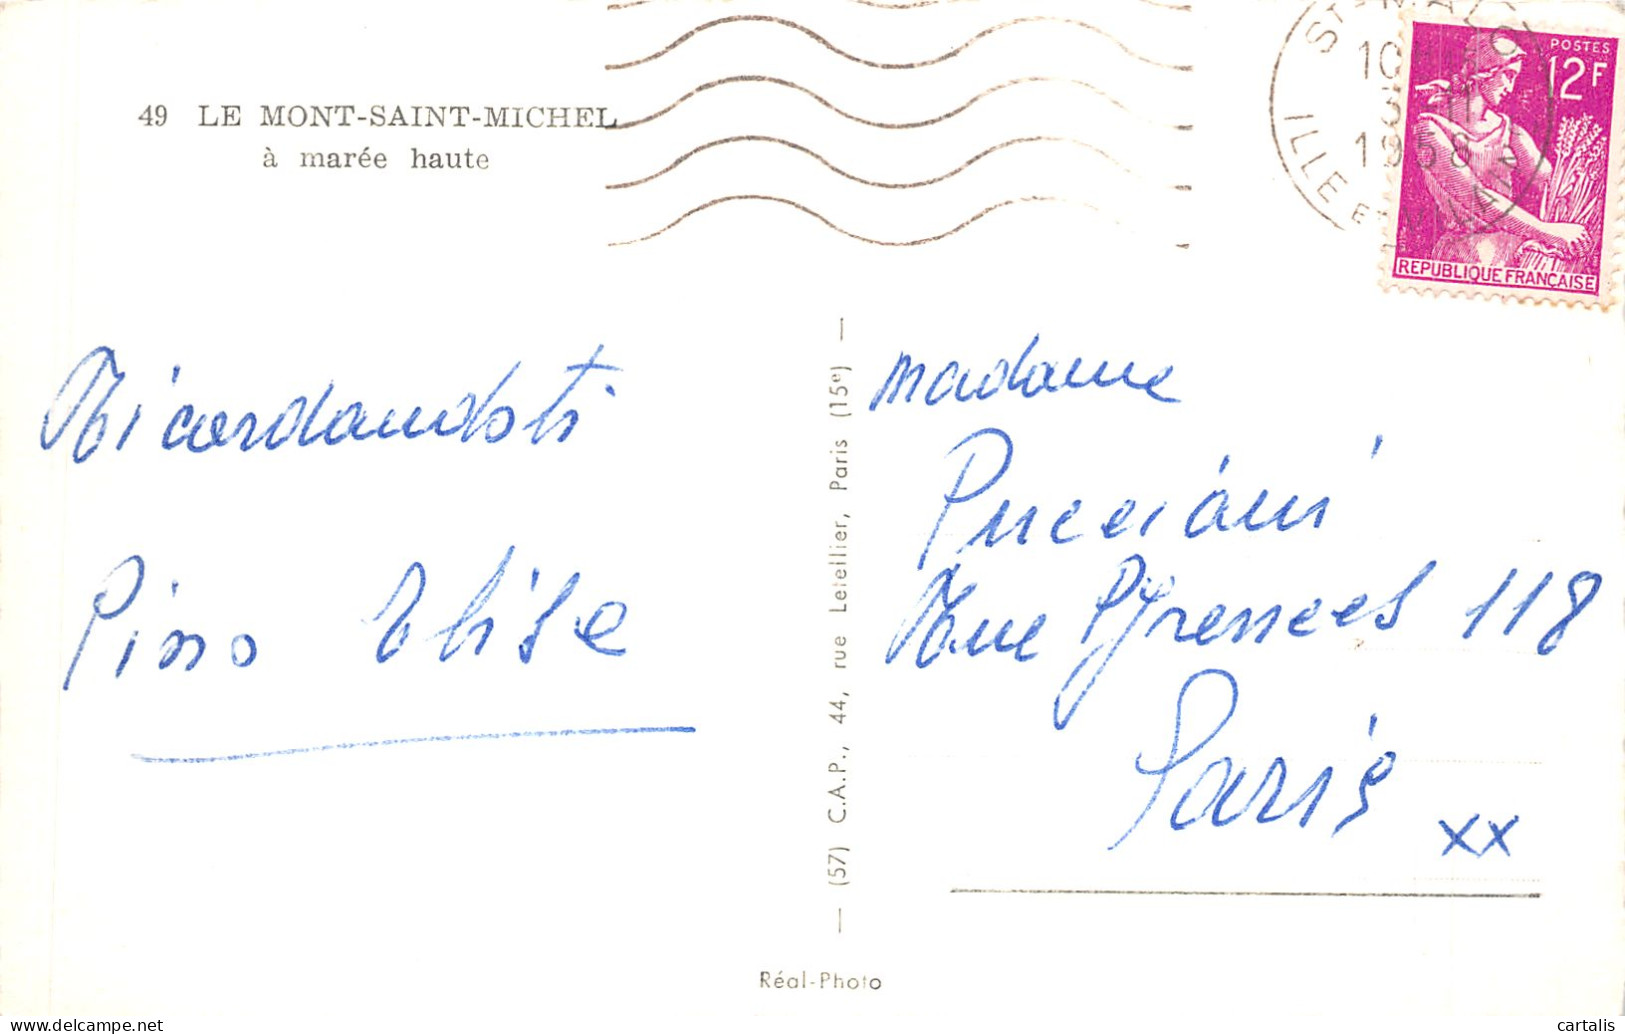 49 LE MONT-SAINT-MICHEL
à marée haute
ST MALO
10
3 - 11
1958
ILLE ET VILAINE
POSTES
12F
REPUBLIQUE FRANÇAISE
Ricordandoti
Pino Elise
(57) C.A.P., 44, rue Letellier, Paris (15e)
Madame
Pucciani
Rue Pyrenees 118
Paris xx
Réal-Photo
delcampe.net
cartalis